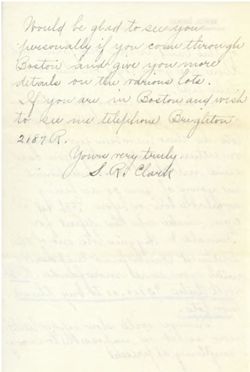 Would be glad to see you
personally if you come through
Boston and give you more
details on the various lots.
If you are in Boston and wish
to see me telephone Brighton
2187 R.
Yours very truly
S. R. Clark